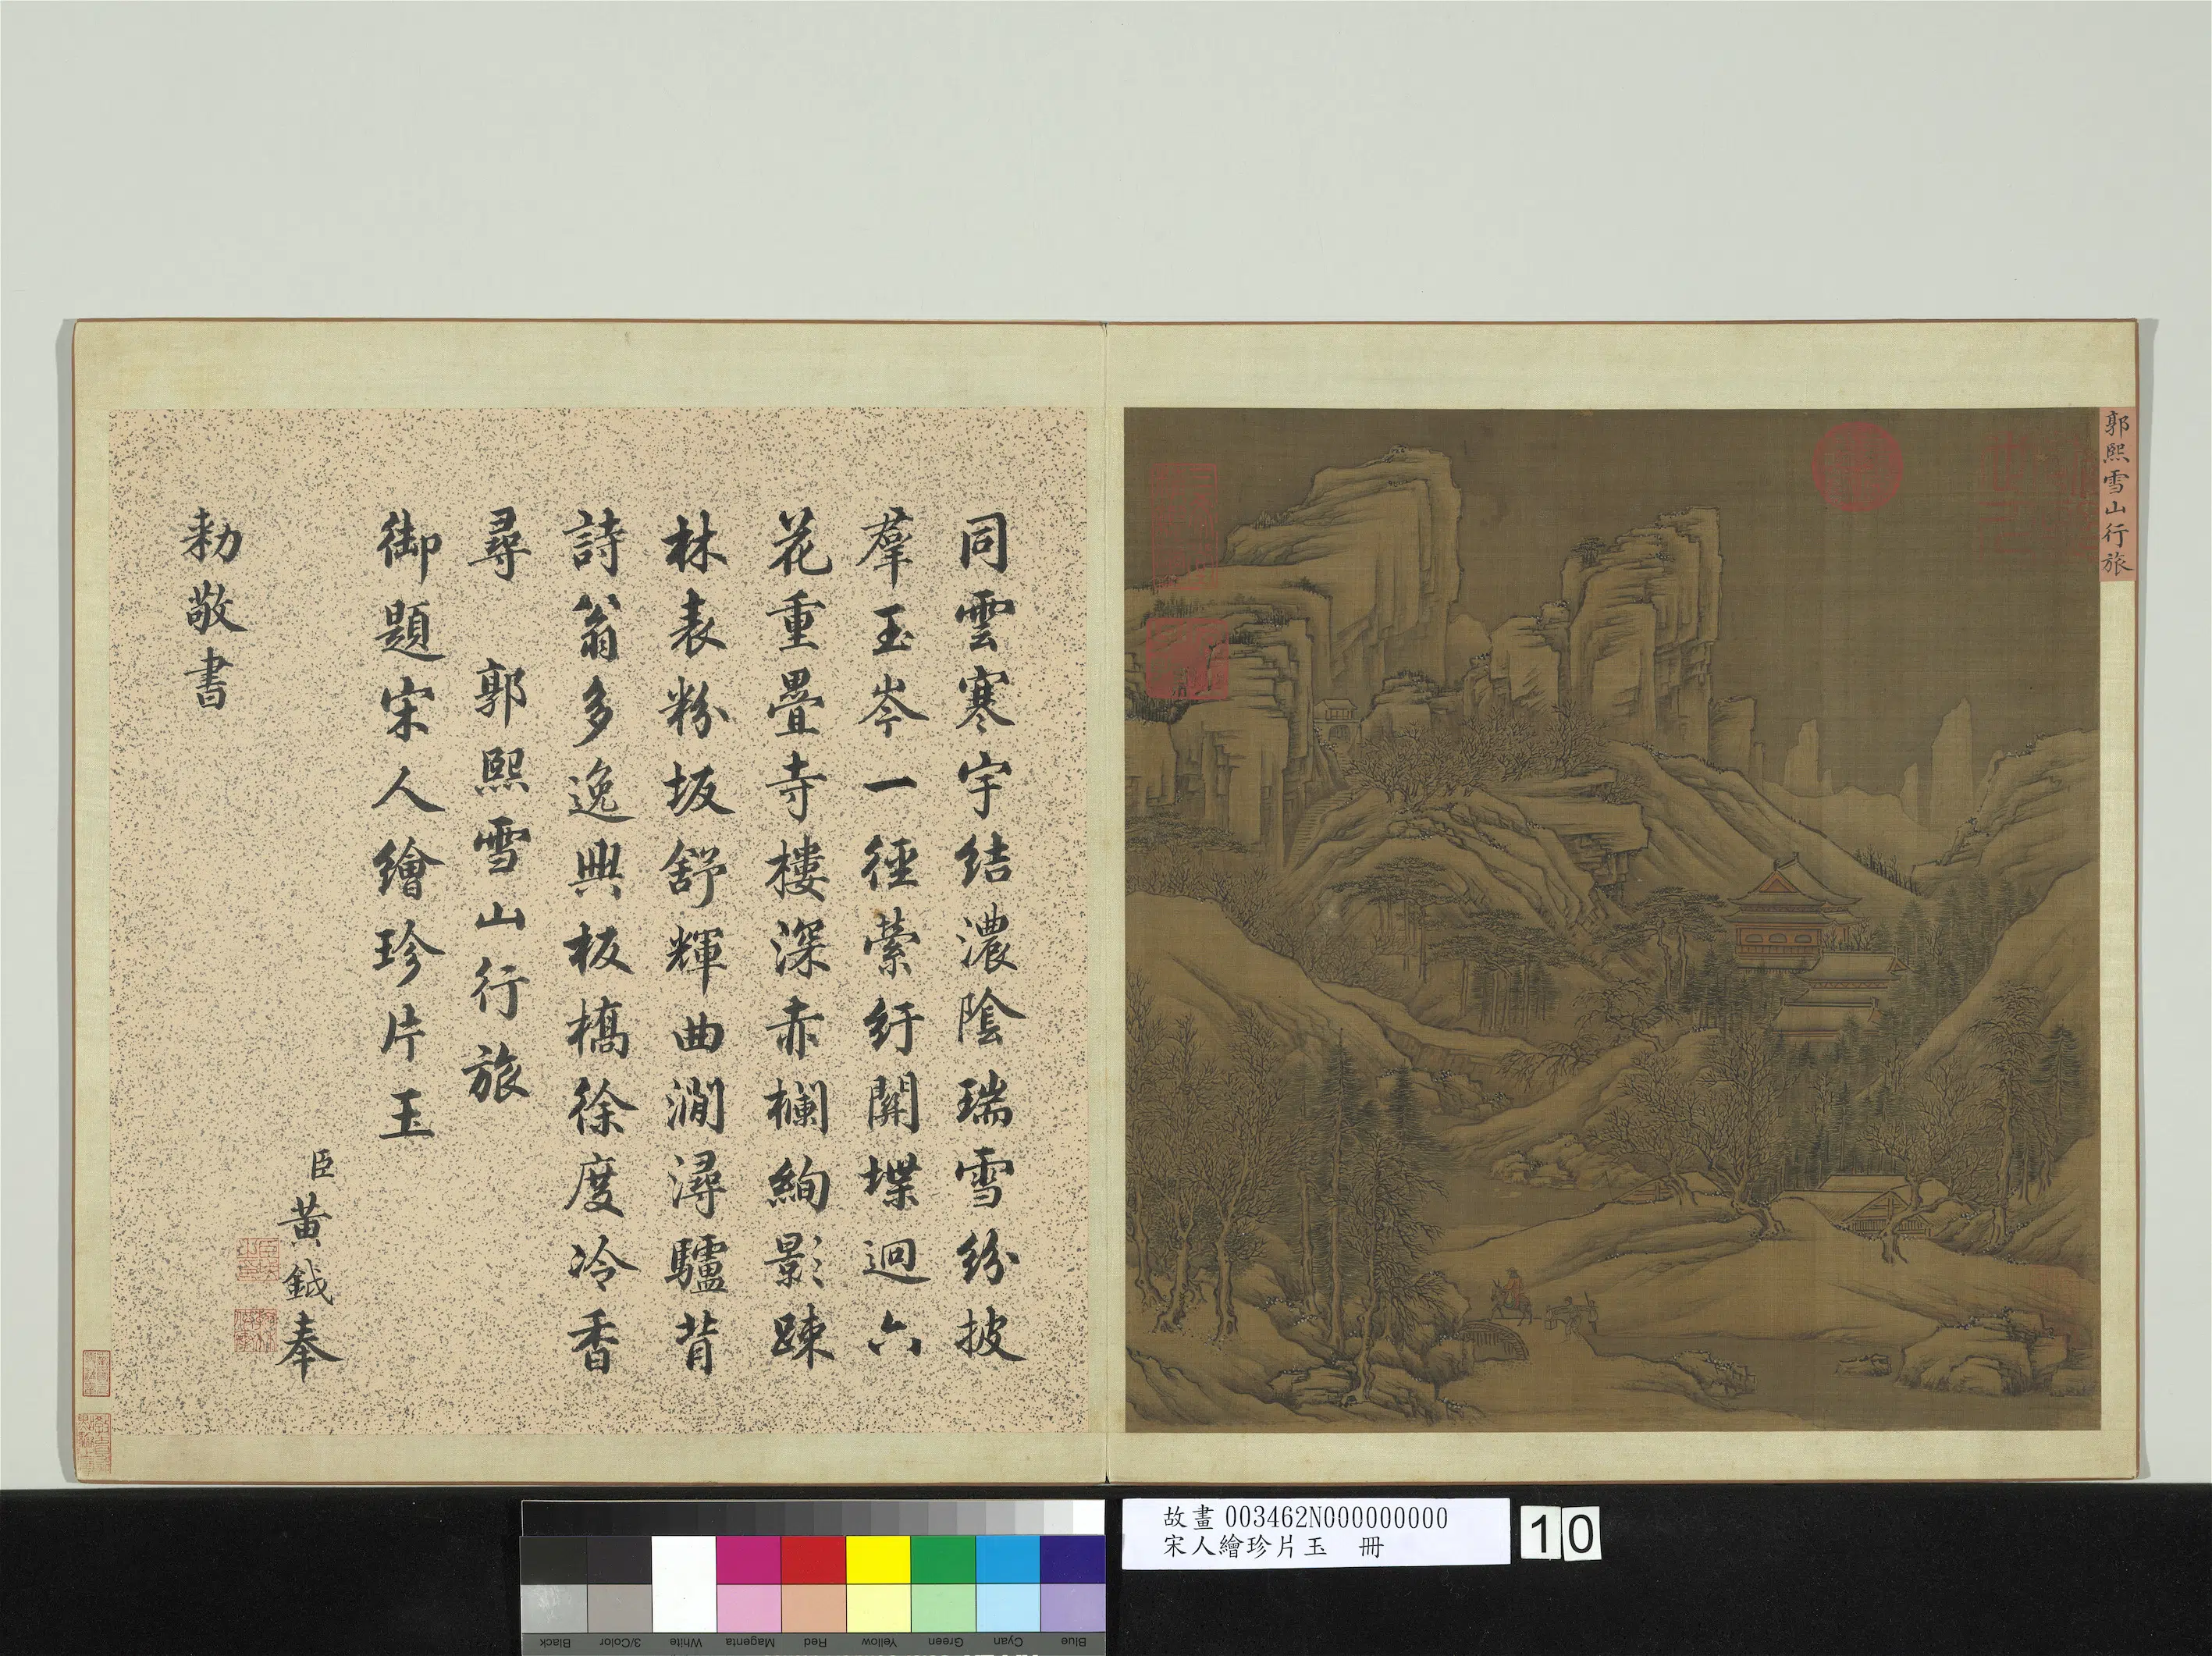 郭熙雪山行旅
同雲寒宇結濃陰瑞雪紛披
羣玉岑一徑縈紆開堞迥六
花重疊寺樓深赤欄絢影踈
林表粉坂舒輝曲澗潯驢背
詩翁多逸興板橋徐度冷香
尋 郭熙雪山行旅
御題宋人繪珍片玉
臣黃鉞奉
勅敬書
故畫003462N000000000
宋人繪珍片玉 冊
10
Black 3/Color White Magenta Red Yellow Green Cyan Blue